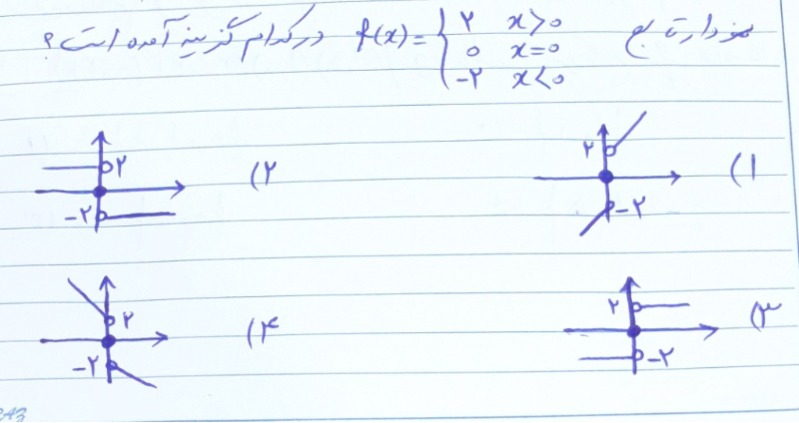 نمودار تابع f(x)= { ۲ x>۰ در کدام گزینه آمده است؟
۰ x=۰
-۲ x<۰
۱)
۲
-۲
۲)
۲
-۲
۳)
۲
-۲
۴)
۲
-۲